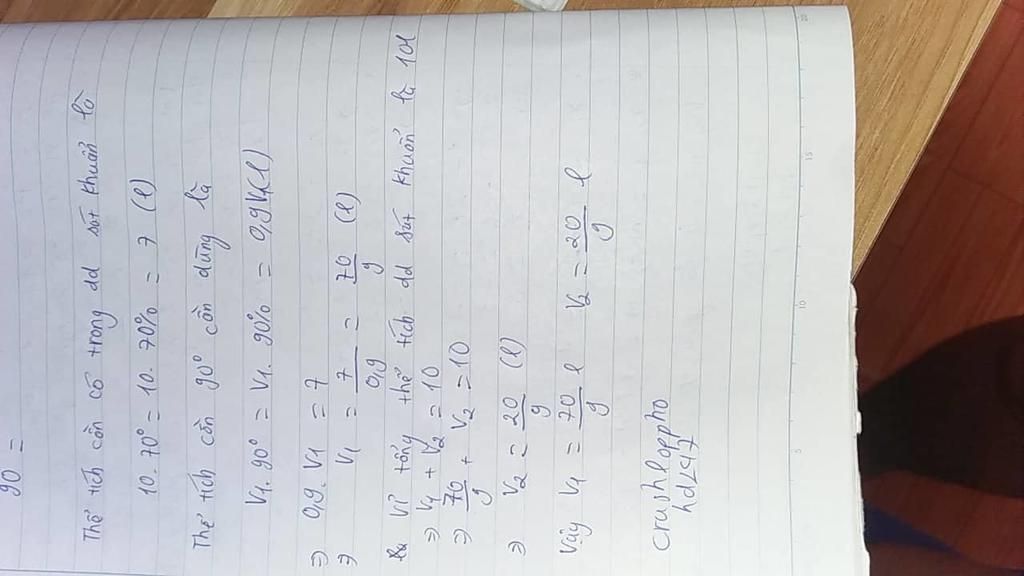 90 =
Thể tích cồn có trong dd sát khuẩn là
10.70° = 10.70% = 7 (l)
Thể tích cồn 90° cần dùng là
V1.90° = V1.90% = 0,9V1(l)
⇒ 0,9.V1 = 7
⇒ V1 = 7/0,9 = 70/9 (l)
Vì tổng thể tích dd sát khuẩn là 10l
⇒ V1 + V2 = 10
⇒ 70/9 + V2 = 10
⇒ V2 = 20/9 (l)
Vậy V1 = 70/9 l V2 = 20/9 l
crushloppho
hd2517